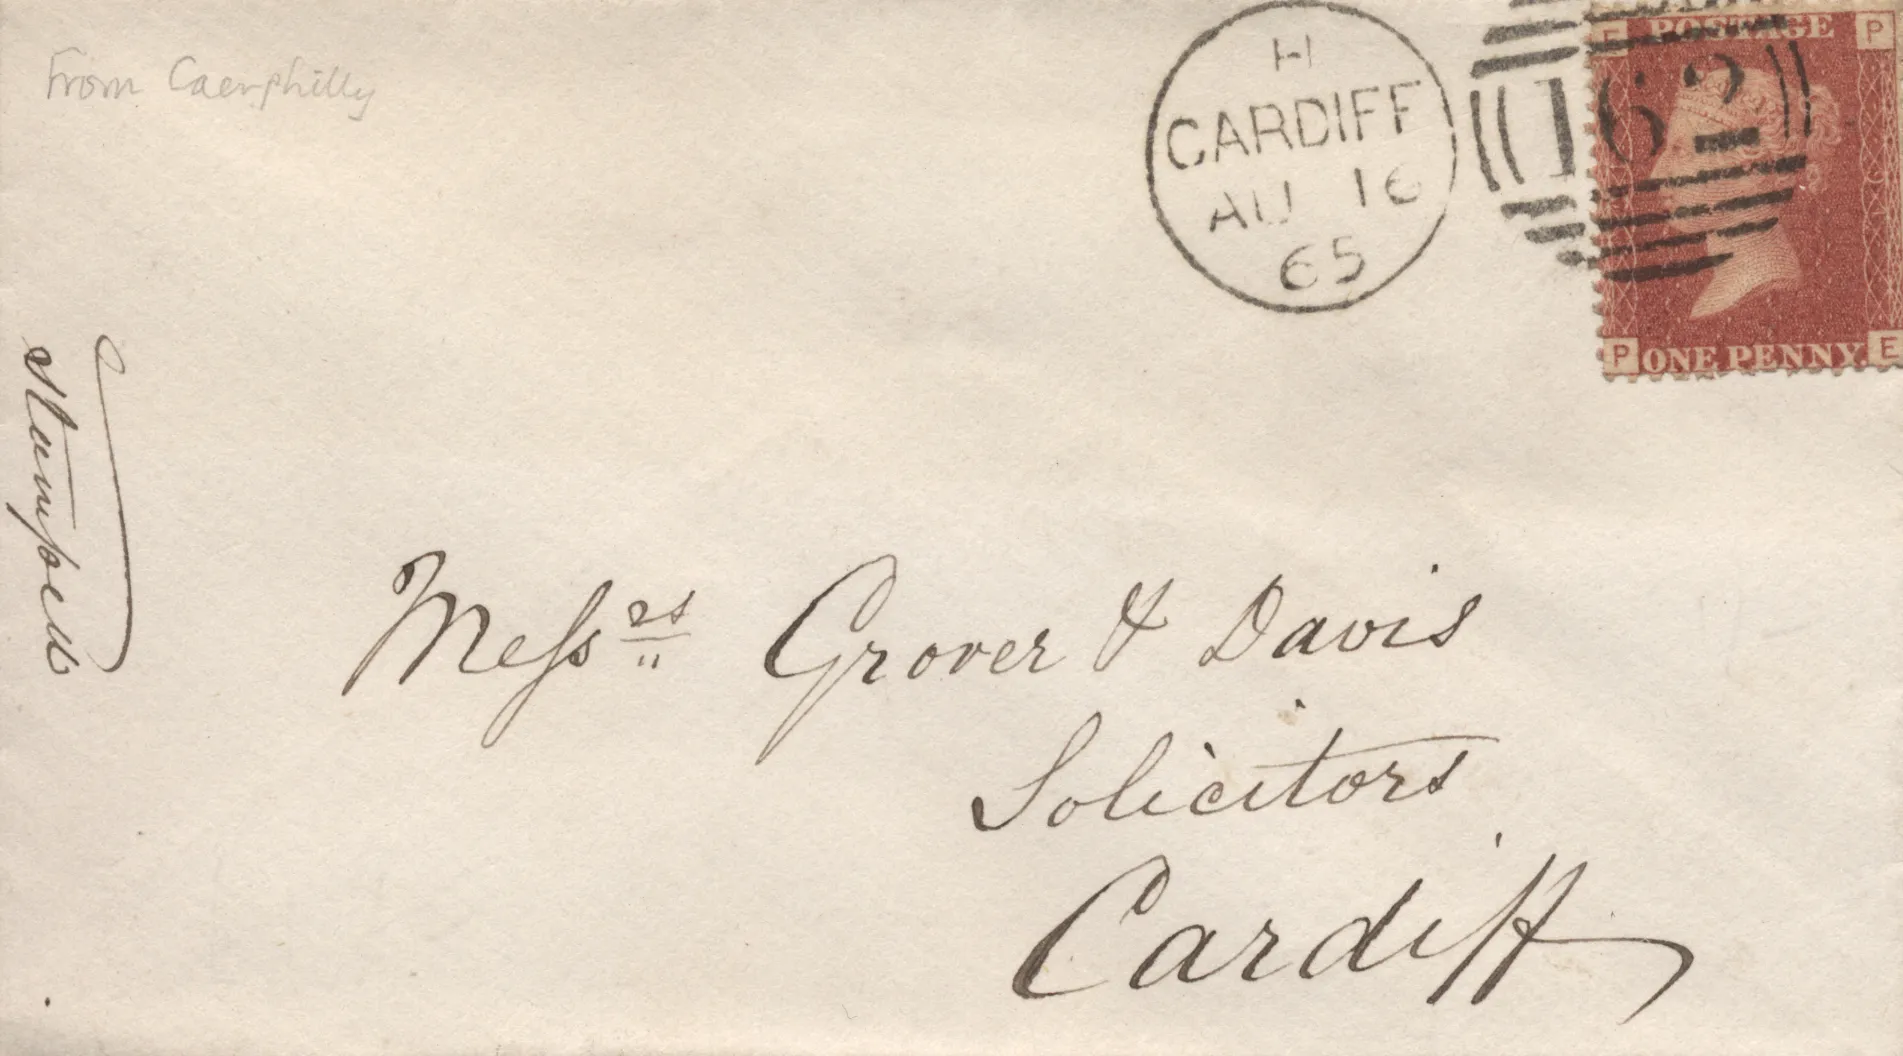 From Caerphilly
H
CARDIFF
AU 16
65
162
E POSTAGE P
P ONE PENNY. E
Messrs Grover & Davis
Solicitors
Cardiff